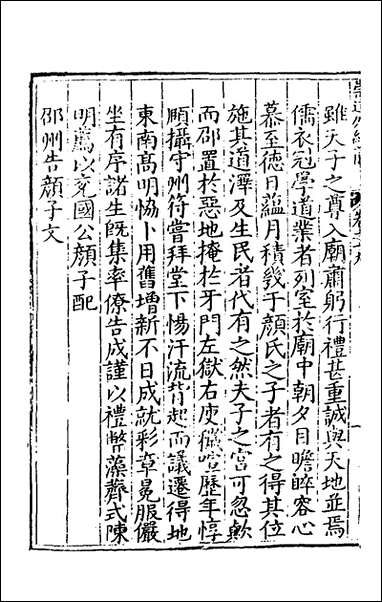 雖天子之尊入廟肅躬行禮甚重誠與天地並焉
儒衣冠學道業者列室於廟中朝夕目瞻睟容心
慕至德日蘊月積幾于顏氏之子者有之得其位
施其道澤及生民者代有之然夫子之宮可忽歟
而邵置於惡地掩於牙門左獄右庾穢喧歷年惇
頤攝守州符嘗拜堂下惕汗流背起而議遷得地
東南高明恊卜用舊增新不日成就彩章冕服儼
坐有序諸生既集率僚告成謹以禮幣藻齋式陳
明薦以兖國公顏子配
邵州告顏子文